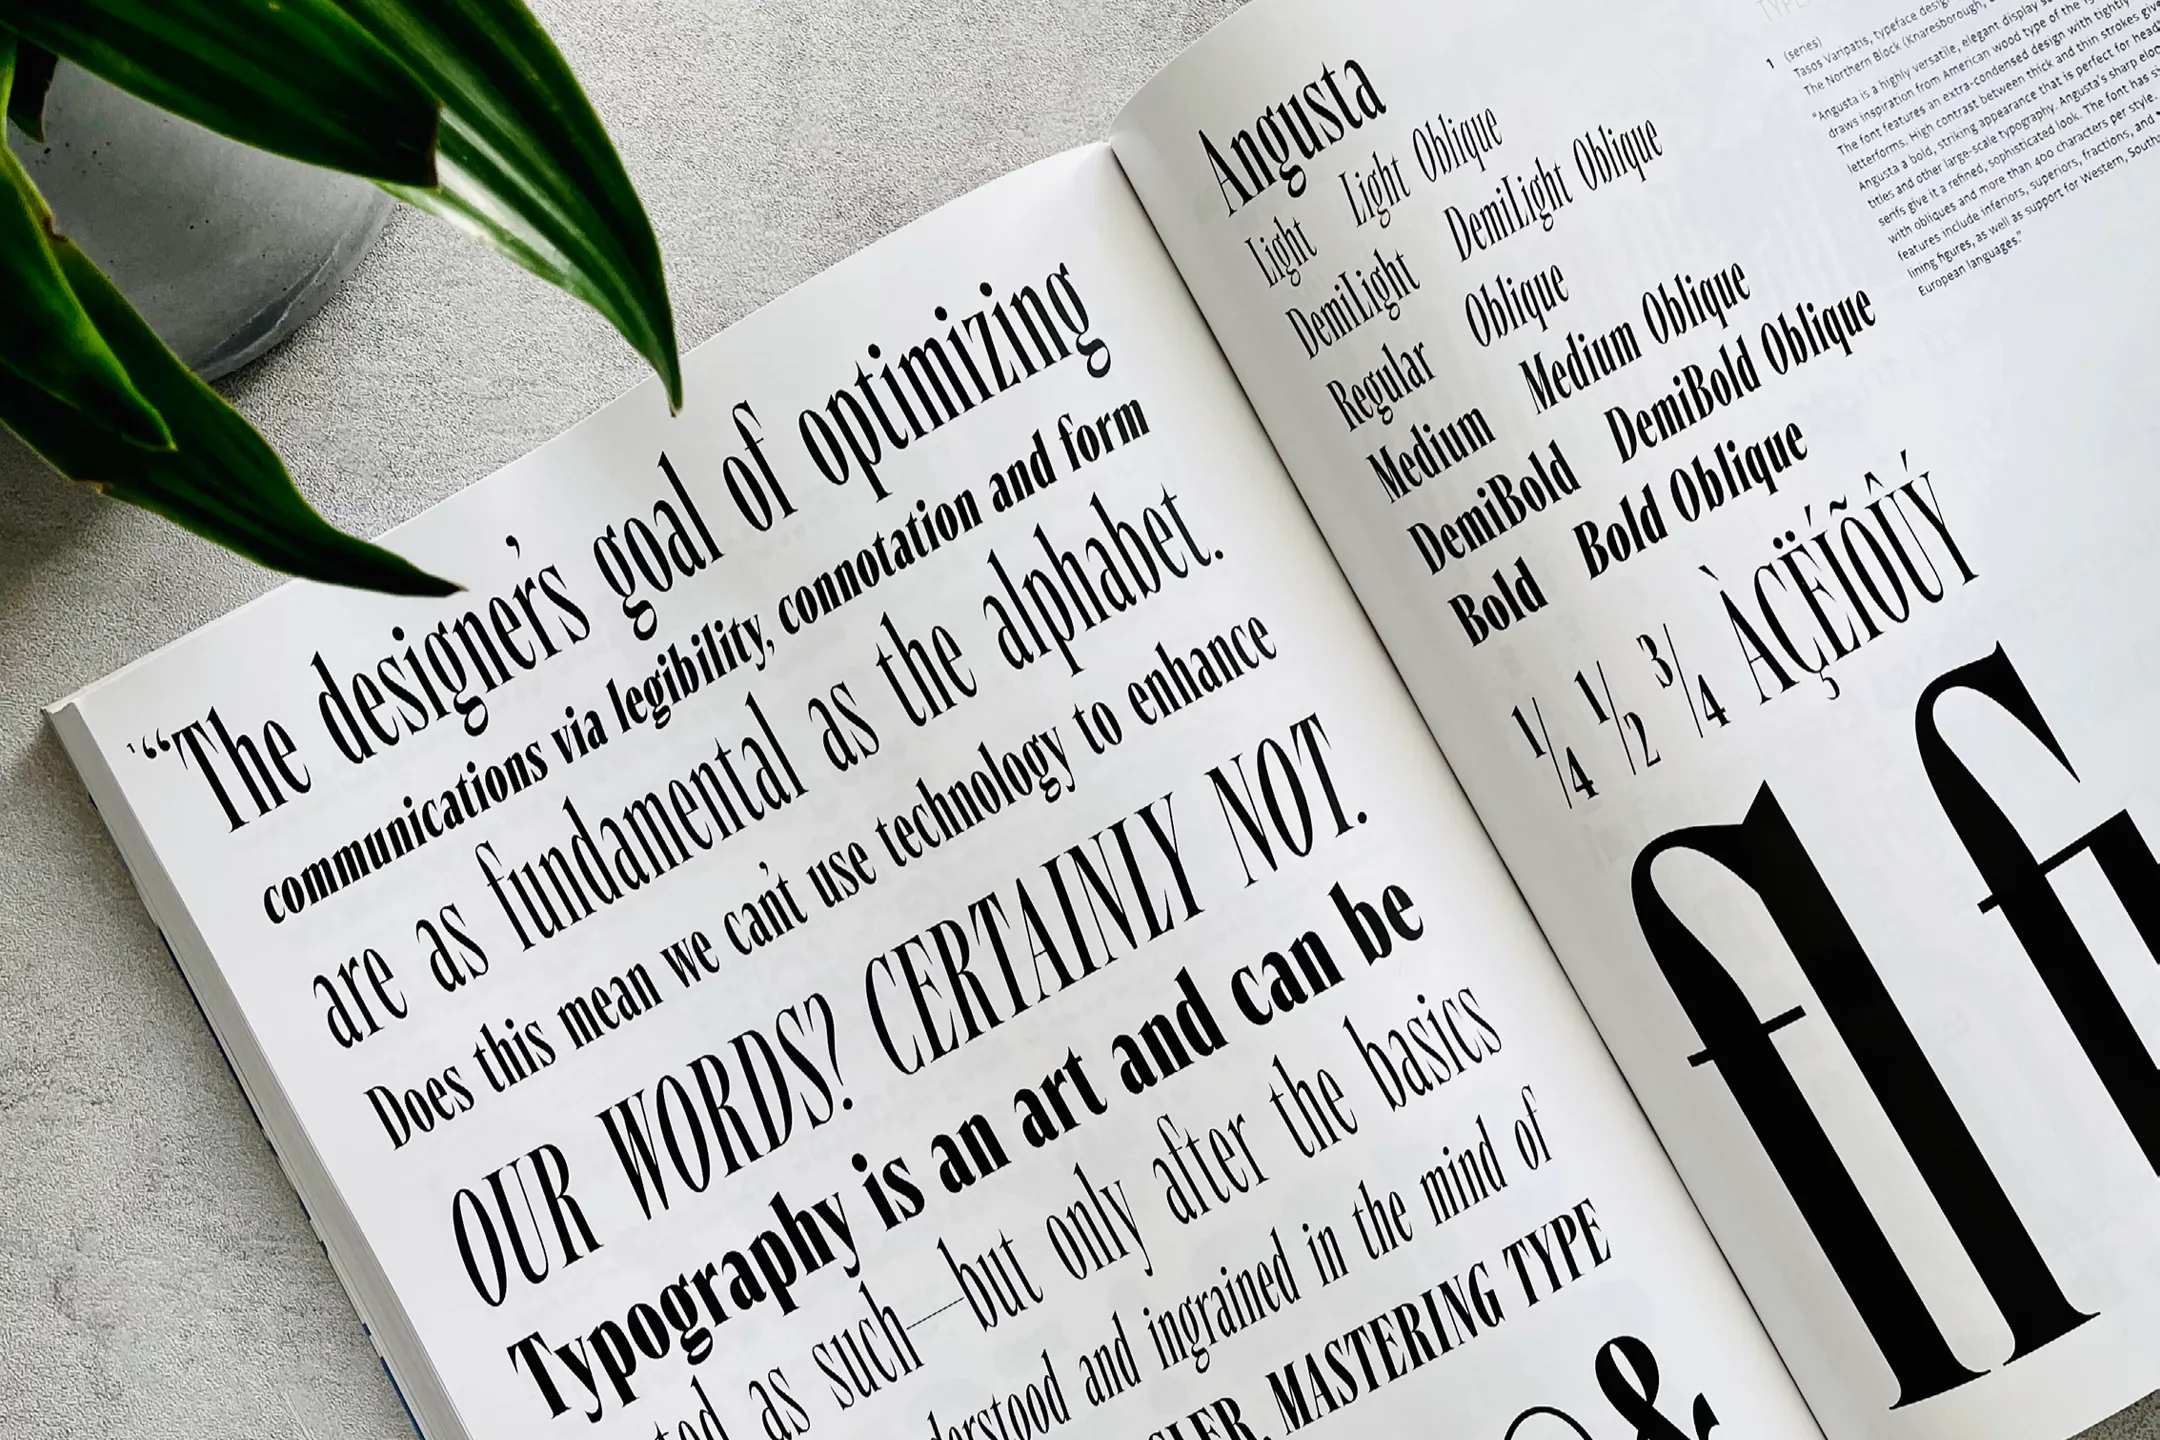 1 “The designer's goal of optimizing
communications via legibility, connotation and form
are as fundamental as the alphabet.
Does this mean we can't use technology to enhance
OUR WORDS? CERTAINLY NOT.
Typography is an art and can be
as such—but only after the basics
and ingrained in the mind of
MASTERING TYPE
&
Angusta
Light Light Oblique
DemiLight DemiLight Oblique
Regular Oblique
Medium Medium Oblique
DemiBold DemiBold Oblique
Bold Bold Oblique
¼ ½ ¾ ÀÇËÍÕÛÝ
1 (series)
Tasos Varipatis, typeface
The Northern Block (Knaresborough,
“Angusta is a highly versatile, elegant display
draws inspiration from American wood type of the
The font features an extra-condensed design with tightly
letterforms. High contrast between thick and thin strokes
Angusta a bold, striking appearance that is perfect for
titles and other large-scale typography. Angusta's sharp
serifs give it a refined, sophisticated look. The font has
with obliques and more than 400 characters per style.
features include inferiors, superiors, fractions, and
lining figures, as well as support for Western,
European languages.”